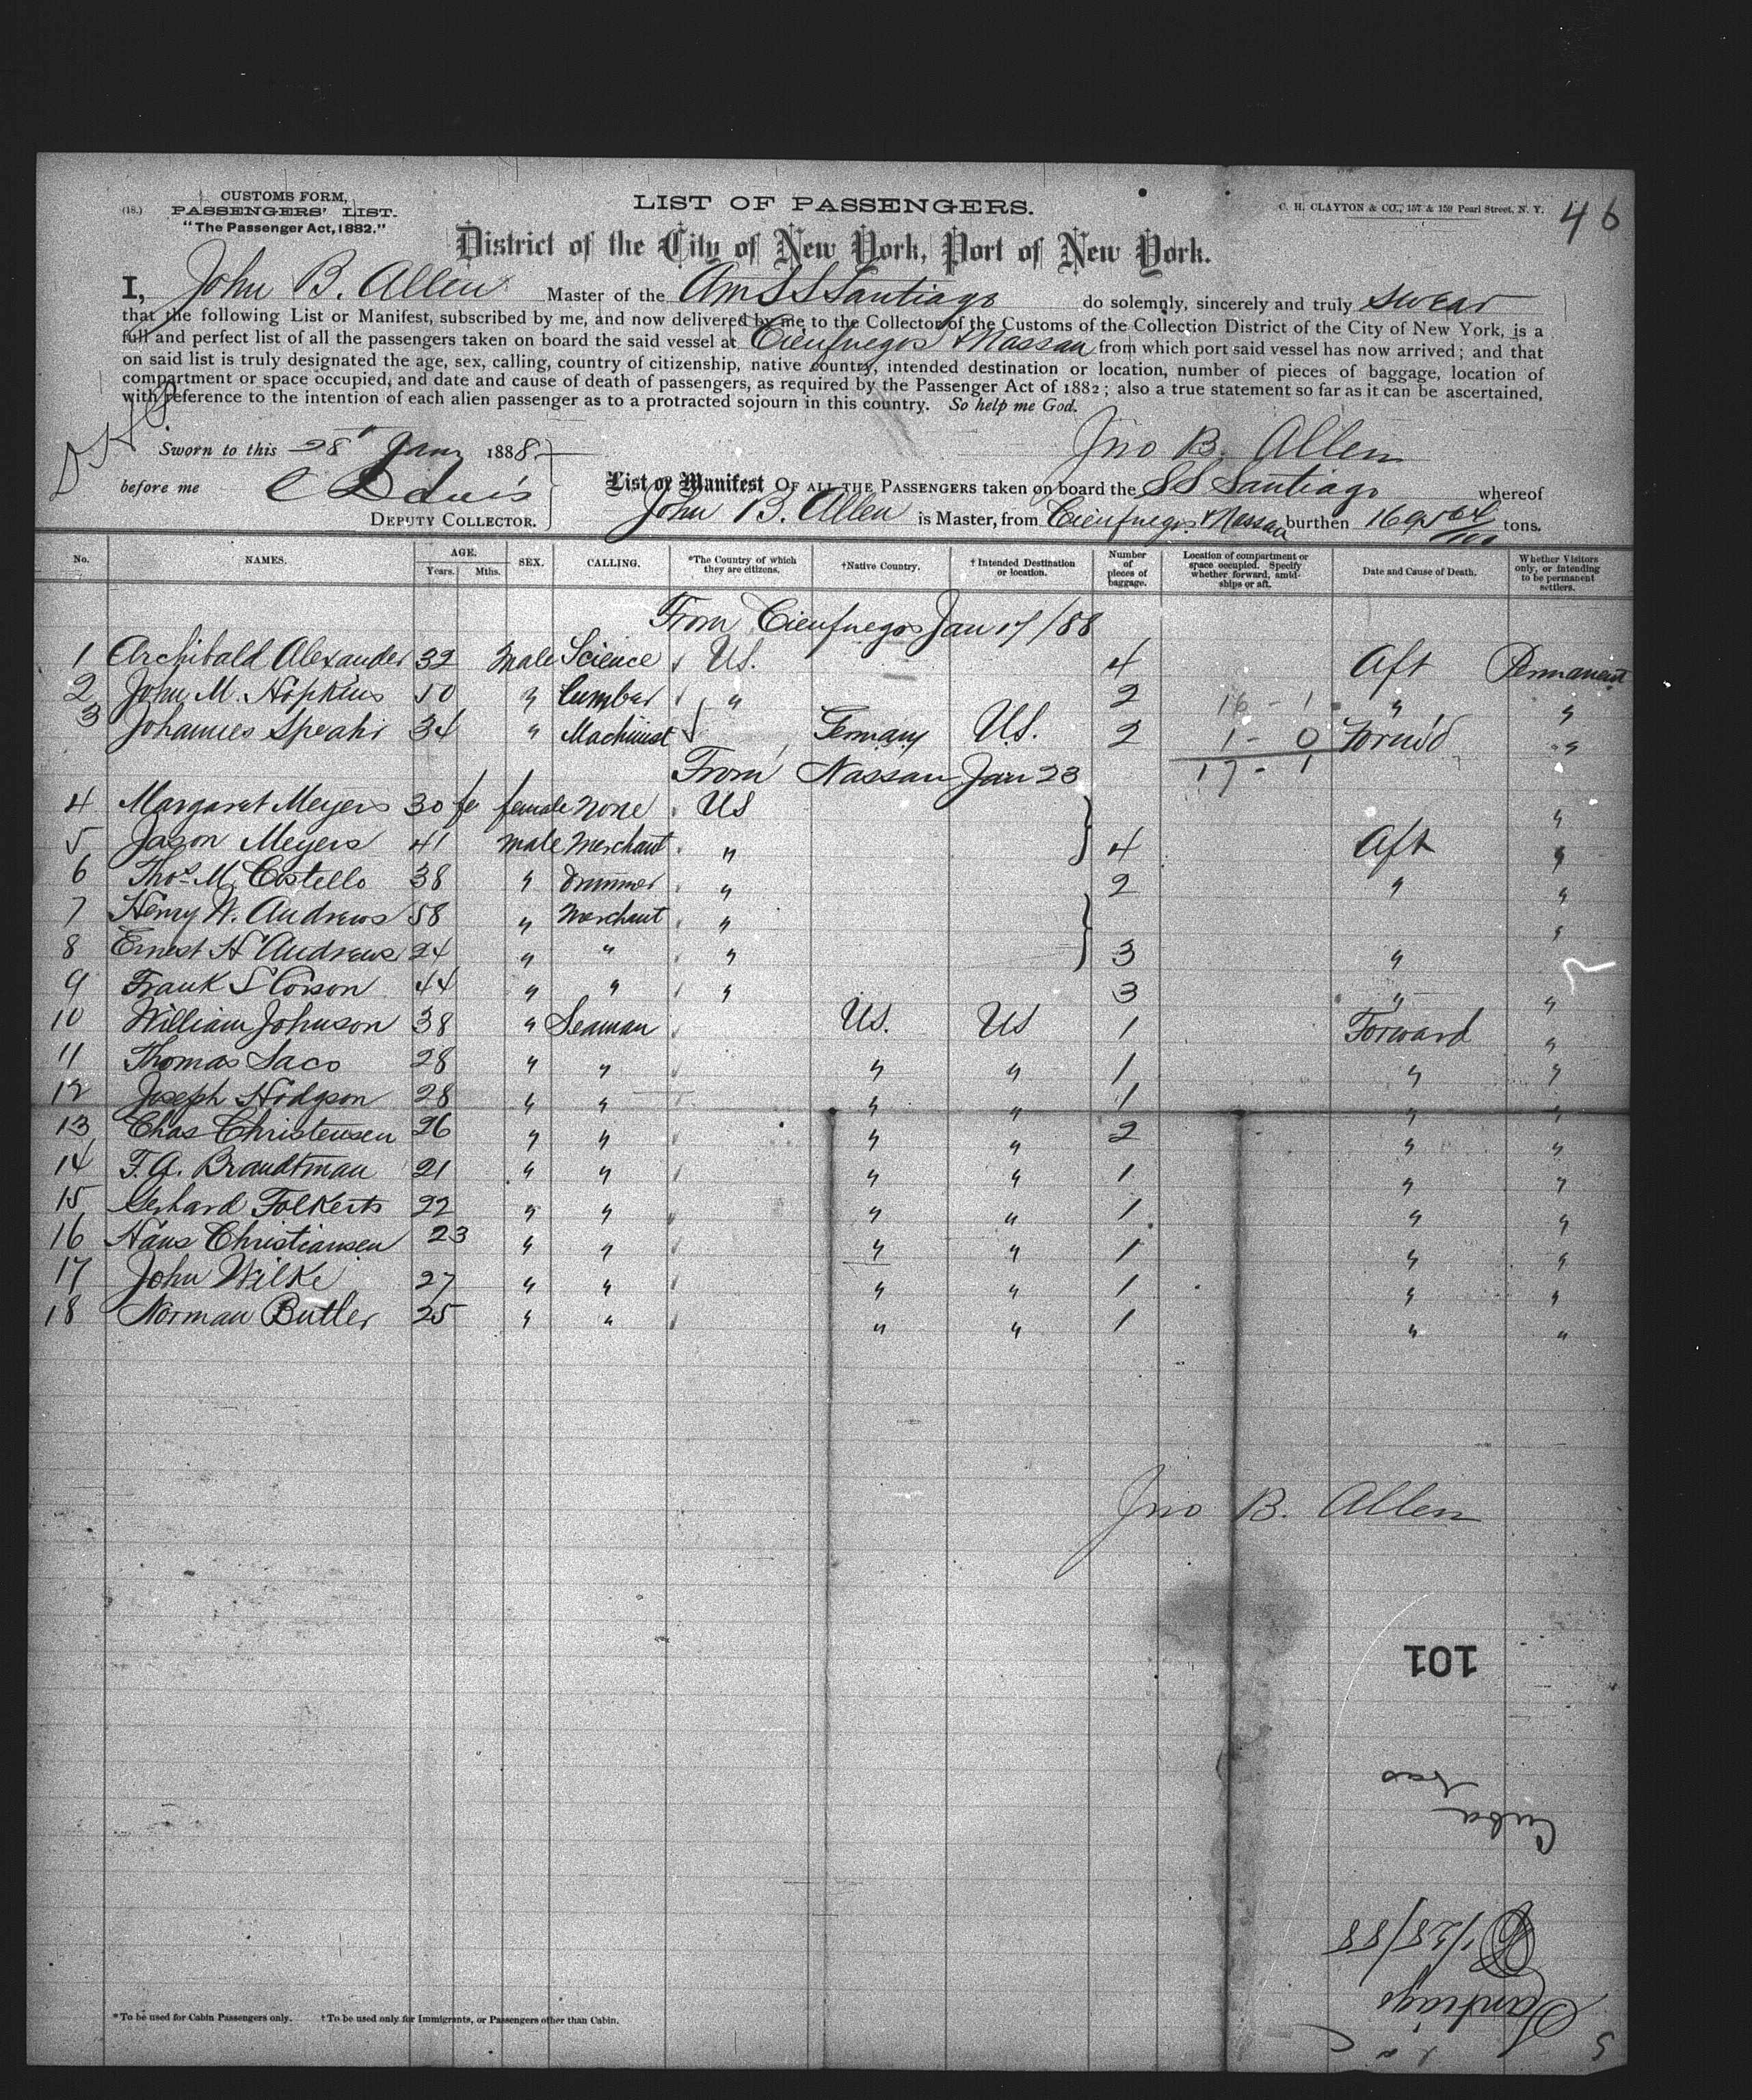 CUSTOMS FORM,
(18.) PASSENGERS' LIST.
"The Passenger Act, 1882."
LIST OF PASSENGERS.
C. H. CLAYTON & CO., 157 & 159 Pearl Street, N. Y.
46
District of the City of New York, Port of New York.
I, John B. Allen Master of the Am SS Santiago do solemnly, sincerely and truly swear
that the following List or Manifest, subscribed by me, and now delivered by me to the Collector of the Customs of the Collection District of the City of New York, is a
full and perfect list of all the passengers taken on board the said vessel at Cienfuegos & Nassau from which port said vessel has now arrived; and that
on said list is truly designated the age, sex, calling, country of citizenship, native country, intended destination or location, number of pieces of baggage, location of
compartment or space occupied, and date and cause of death of passengers, as required by the Passenger Act of 1882; also a true statement so far as it can be ascertained,
with reference to the intention of each alien passenger as to a protracted sojourn in this country. So help me God.
Jno B. Allen
Sworn to this 28 Jany 1888.
before me
DEPUTY COLLECTOR.
List or Manifest OF ALL THE PASSENGERS taken on board the SS Santiago whereof
John B. Allen is Master, from Cienfuegos & Nassau burthen 1695 64/100 tons.
No. NAMES. AGE. Years. Mths. SEX. CALLING. *The Country of which they are citizens. †Native Country. †Intended Destination or location. Number of pieces of baggage. Location of compartment or space occupied. Specify whether forward, amidships or aft. Date and Cause of Death. Whether Visitors only, or intending to be permanent settlers.
From Cienfuegos Jan 17/88
1 Archibald Alexander 32 Male Science U.S. 4 Aft Permanent
2 John M. Hopkins 50 " Lumber " 2 16 - 1 " "
3 Johannes Speahr 34 " Machinist Germany U.S. 2 1 - 0 Forw'd "
From Nassau Jan 23 17 - 1
4 Margaret Meyers 30 fe female None US "
5 Jason Meyers 41 male Merchant " 4 Aft "
6 Thos M Costello 38 " Drummer " 2 " "
7 Henry W. Andrews 58 " Merchant " "
8 Ernest H Andrews 24 " " " 3 "
9 Frank S Corson 44 " " " 3 " "
10 William Johnson 38 " Seaman U.S. US 1 Forward "
11 Thomas Saco 28 " " " " 1 " "
12 Joseph Hodgson 28 " " " " 1 " "
13 Chas Christensen 26 " " " " 2 " "
14 F. A. Brandtman 21 " " " " 1 " "
15 Gerhard Folkerts 22 " " " " 1 " "
16 Hans Christiansen 23 " " " " 1 " "
17 John Wilke 27 " " " " 1 " "
18 Norman Butler 25 " " " " 1 " "
Jno B. Allen
101
Cuba
Santiago
1/28/88
*To be used for Cabin Passengers only. †To be used only for Immigrants, or Passengers other than Cabin.